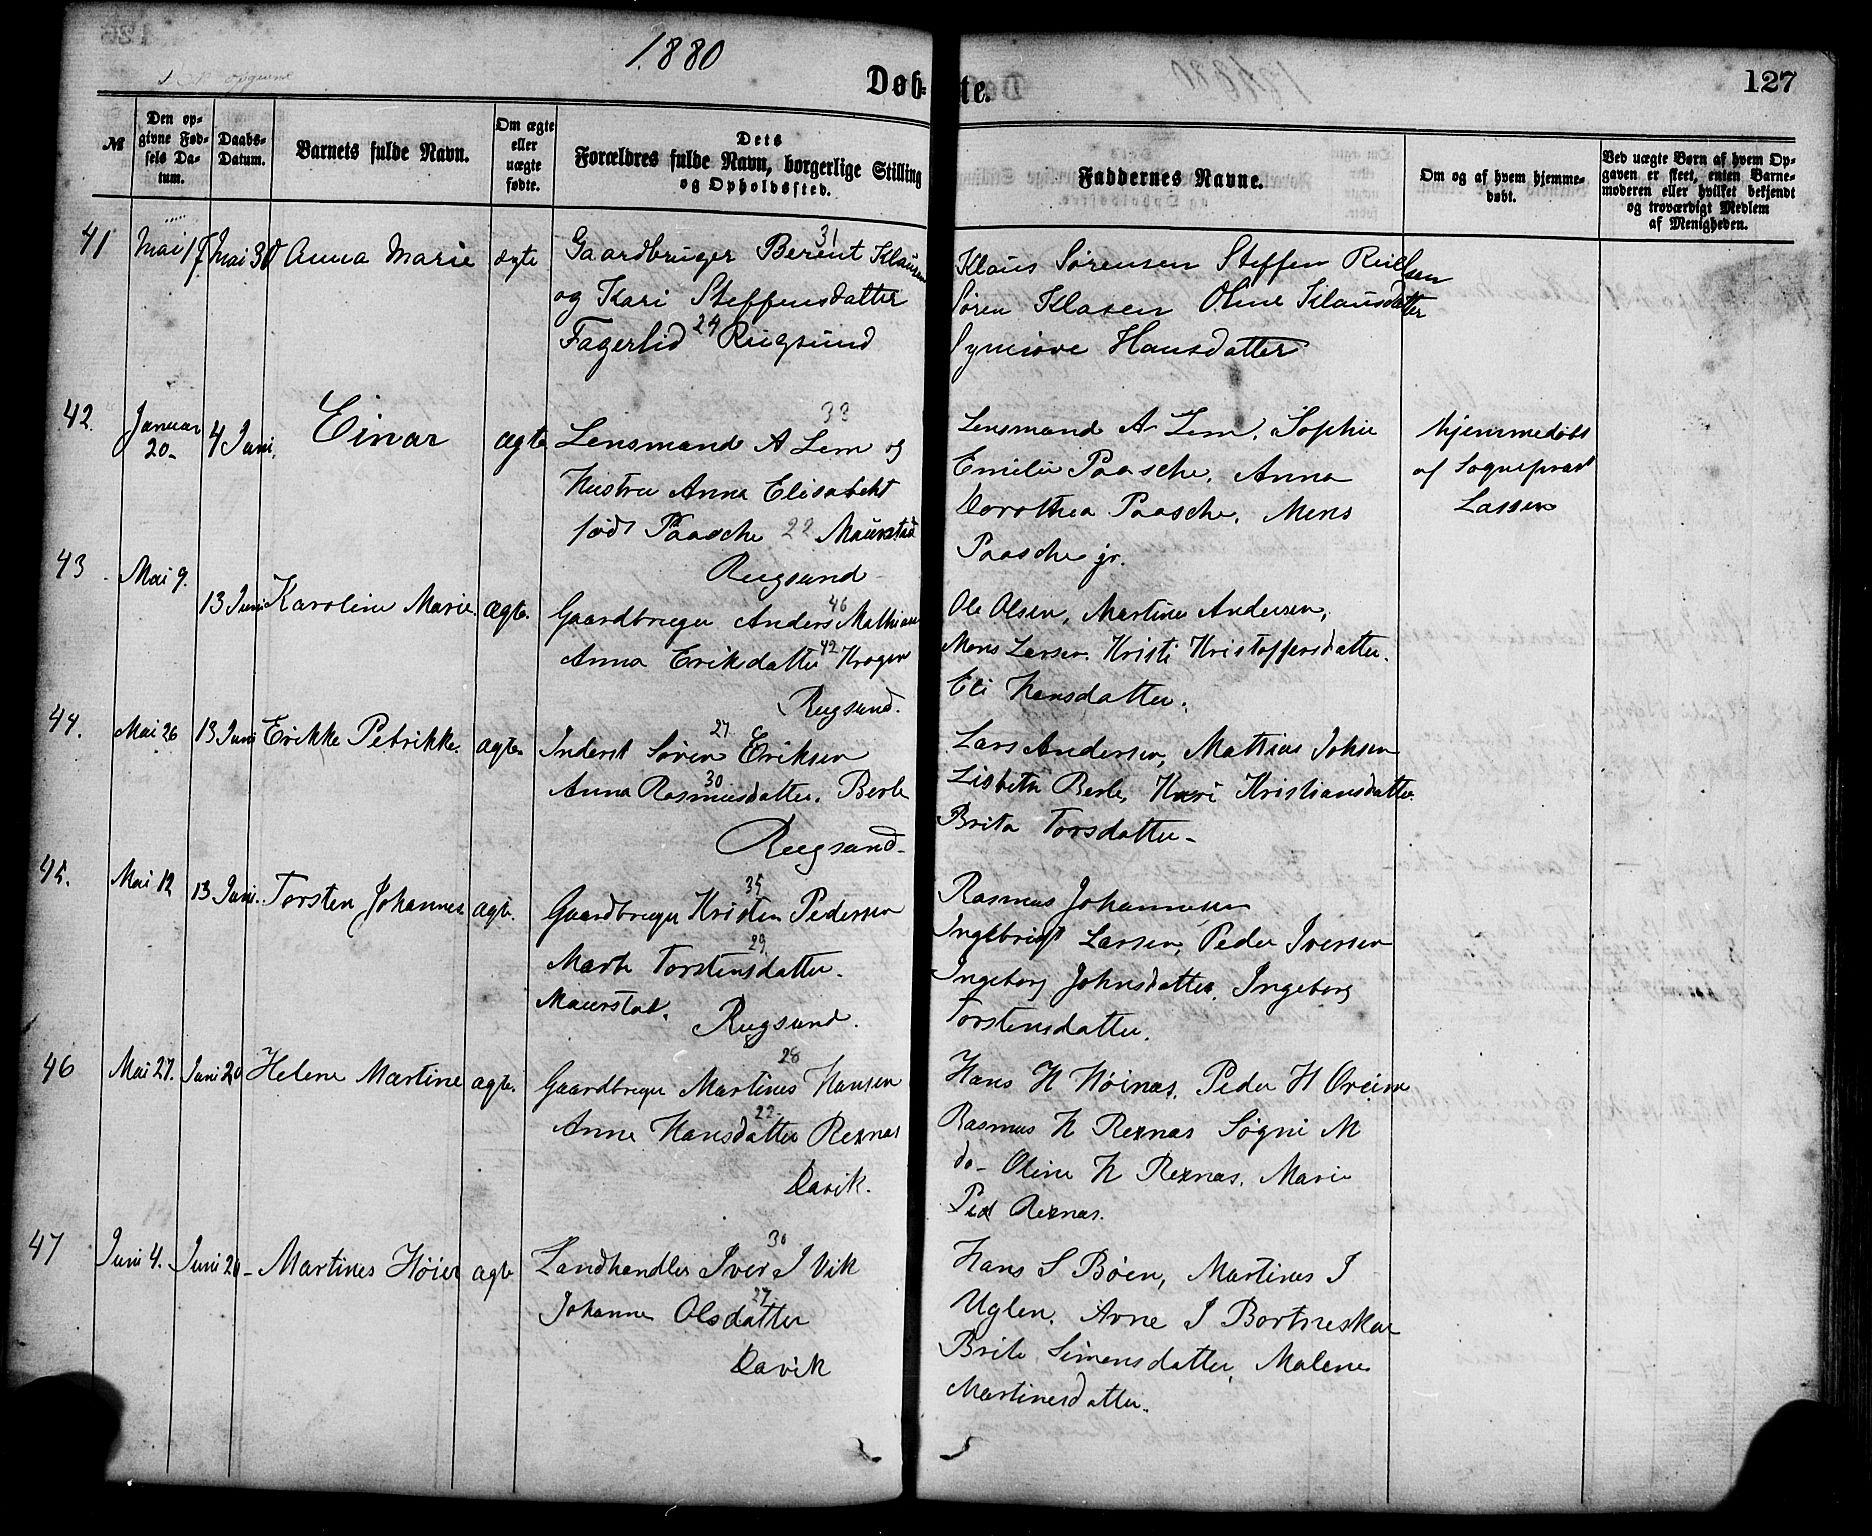 1880
Døb-te.
127
№
Den opgivne Fødsels Datum.
Daabs-Datum.
Barnets fulde Navn.
Om ægte eller uægte fødte.
Dets Forældres fulde Navn, borgerlige Stilling og Opholdssted.
Faddernes Navne.
Om og af hvem hjemmedøbt.
Ved uægte Børn af hvem Opgaven er skeet, enten Barnemoderen eller hvilket bekjendt og troværdigt Medlem af Menigheden.
41 Mai 17 Mai 30 Anna Marie ægte
Gaardbruger Berent Klausen 31
og Kari Steffensdatter
Fagerlid 24 Rugsund
Klaus Sørensen Steffen
Søren Klasen Oline Klausdatter
Synnøve Hansdatter
42. Januar 20. 4 Juni. Einar ægte
33
Lensmand A Lem og
Hustru Anna Elisabeht
født Paasche 22 Maurstad
Rugsund
Lensmand A Lem, Sophie
Emilie Paasche, Anna
Dorothea Paasche, Mons
Paasche jr.
Hjemmedøbt
af Sogneprest
Lassen
43 Mai 9. 13 Juni Karoline Marie ægte.
Gaardbruger Anders 46 Mathiasen
Anna Eriksdatter 42 Krogen
Rugsund.
Ole Olsen, Martines Andersen,
Mons Larsen. Kristi Kristoffersdatter.
Eli Hansdatter.
44. Mai 26 13 Juni Erikke Petrikke. ægte
Inderst Søren 27 Eriksen
Anna Rasmusdatter. 30 Berle
Rugsund
Lars Andersen, Mathias Johsen
Lisbeth Berle, Kari Kristiansdatter
Brita Torsdatter
45. Mai 12 13 Juni. Torsten Johannes ægte.
Gaardbruger Kristen 35 Pedersen
Marte Torstensdatter 29
Maurstad. Rugsund.
Rasmus Johannesen
Ingebrigt Larsen, Peder Iversen
Ingeborg Johnsdatter, Ingeborg
Torstensdatter.
46 Mai 27. Juni 20 Helene Martine ægte.
Gaardbruger Martines 28 Hansen
Anne Hansdatter 22 Rexnæs
Davik.
Hans H Høinæs, Peder H
Rasmus H Rexnæs Søgni M
do- Oline H Rexnæs, Marie
Ped Rexnæs.
47 Juni 4. Juni 20 Martines Høier ægte
Landhandler Iver I 30 Vik
Johanne Olsdatter 27
Davik
Hans S Bøen, Martines I
Uglen, Arne I Bortneskar
Brite Simensdatter, Malene
Martinesdatter.